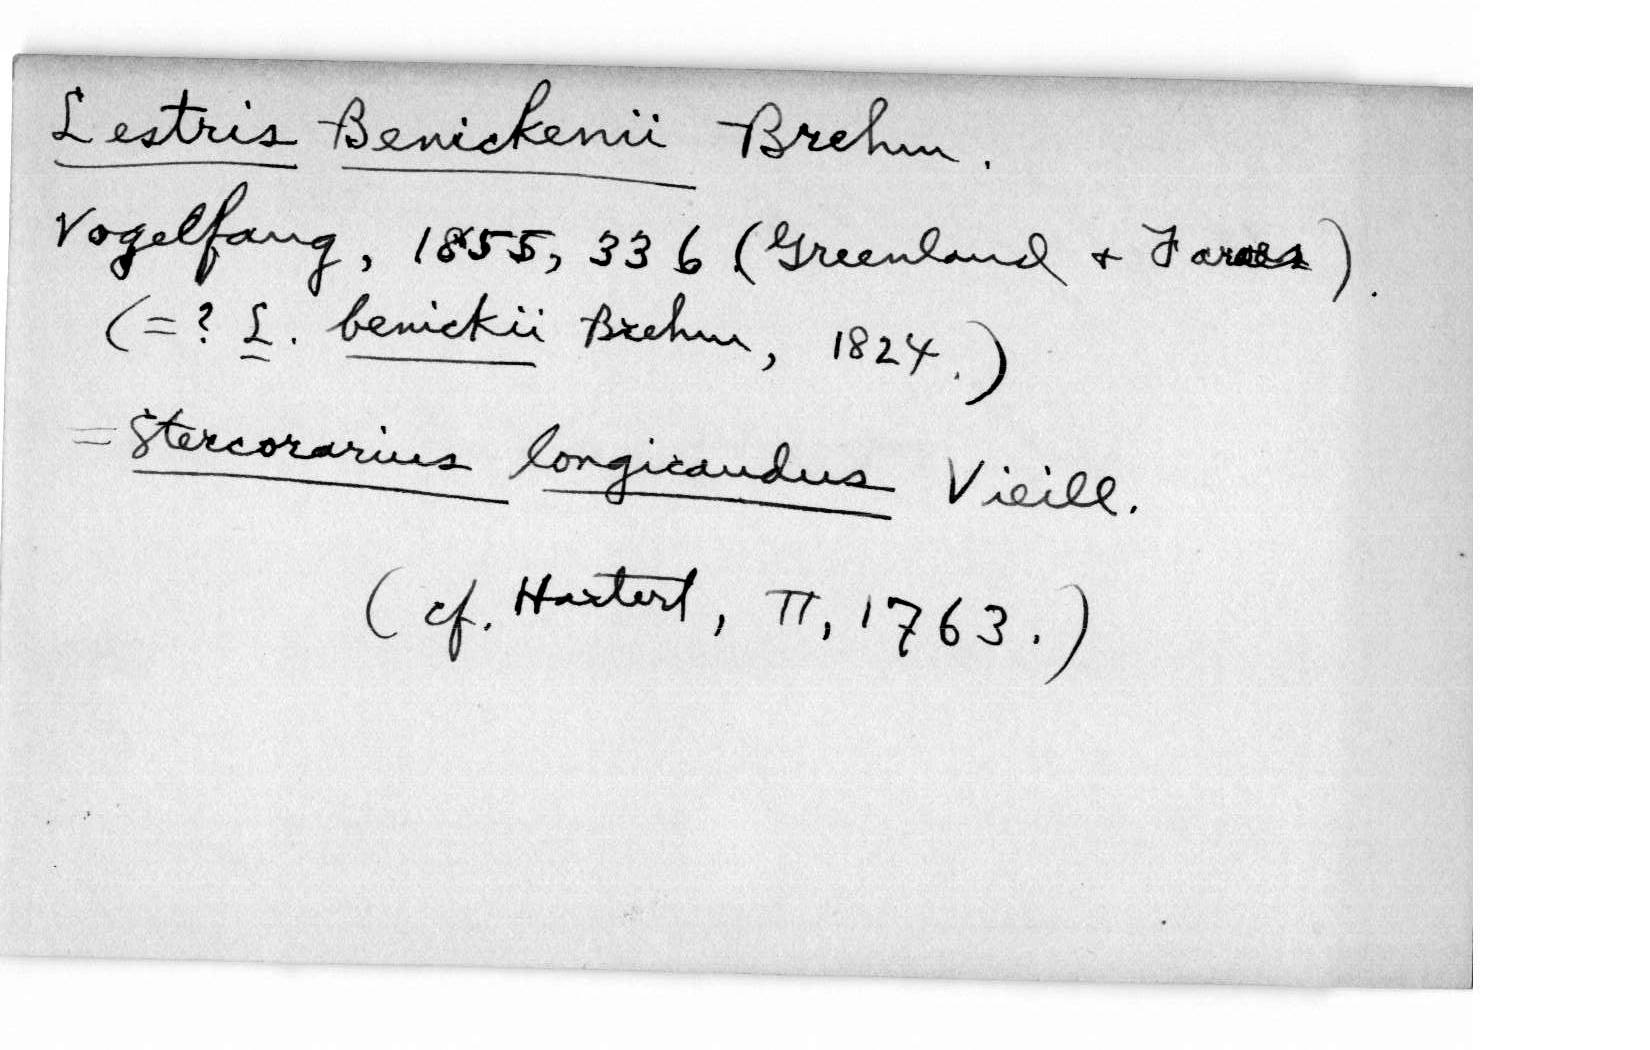 Lestris Benickenii Brehm.
Vogelfang, 1855, 336 (Greenland + Faroes).
(=? L. benickii Brehm, 1824.)
= Stercorarius longicaudus Vieill.
(cf. Hartert, II, 1763.)